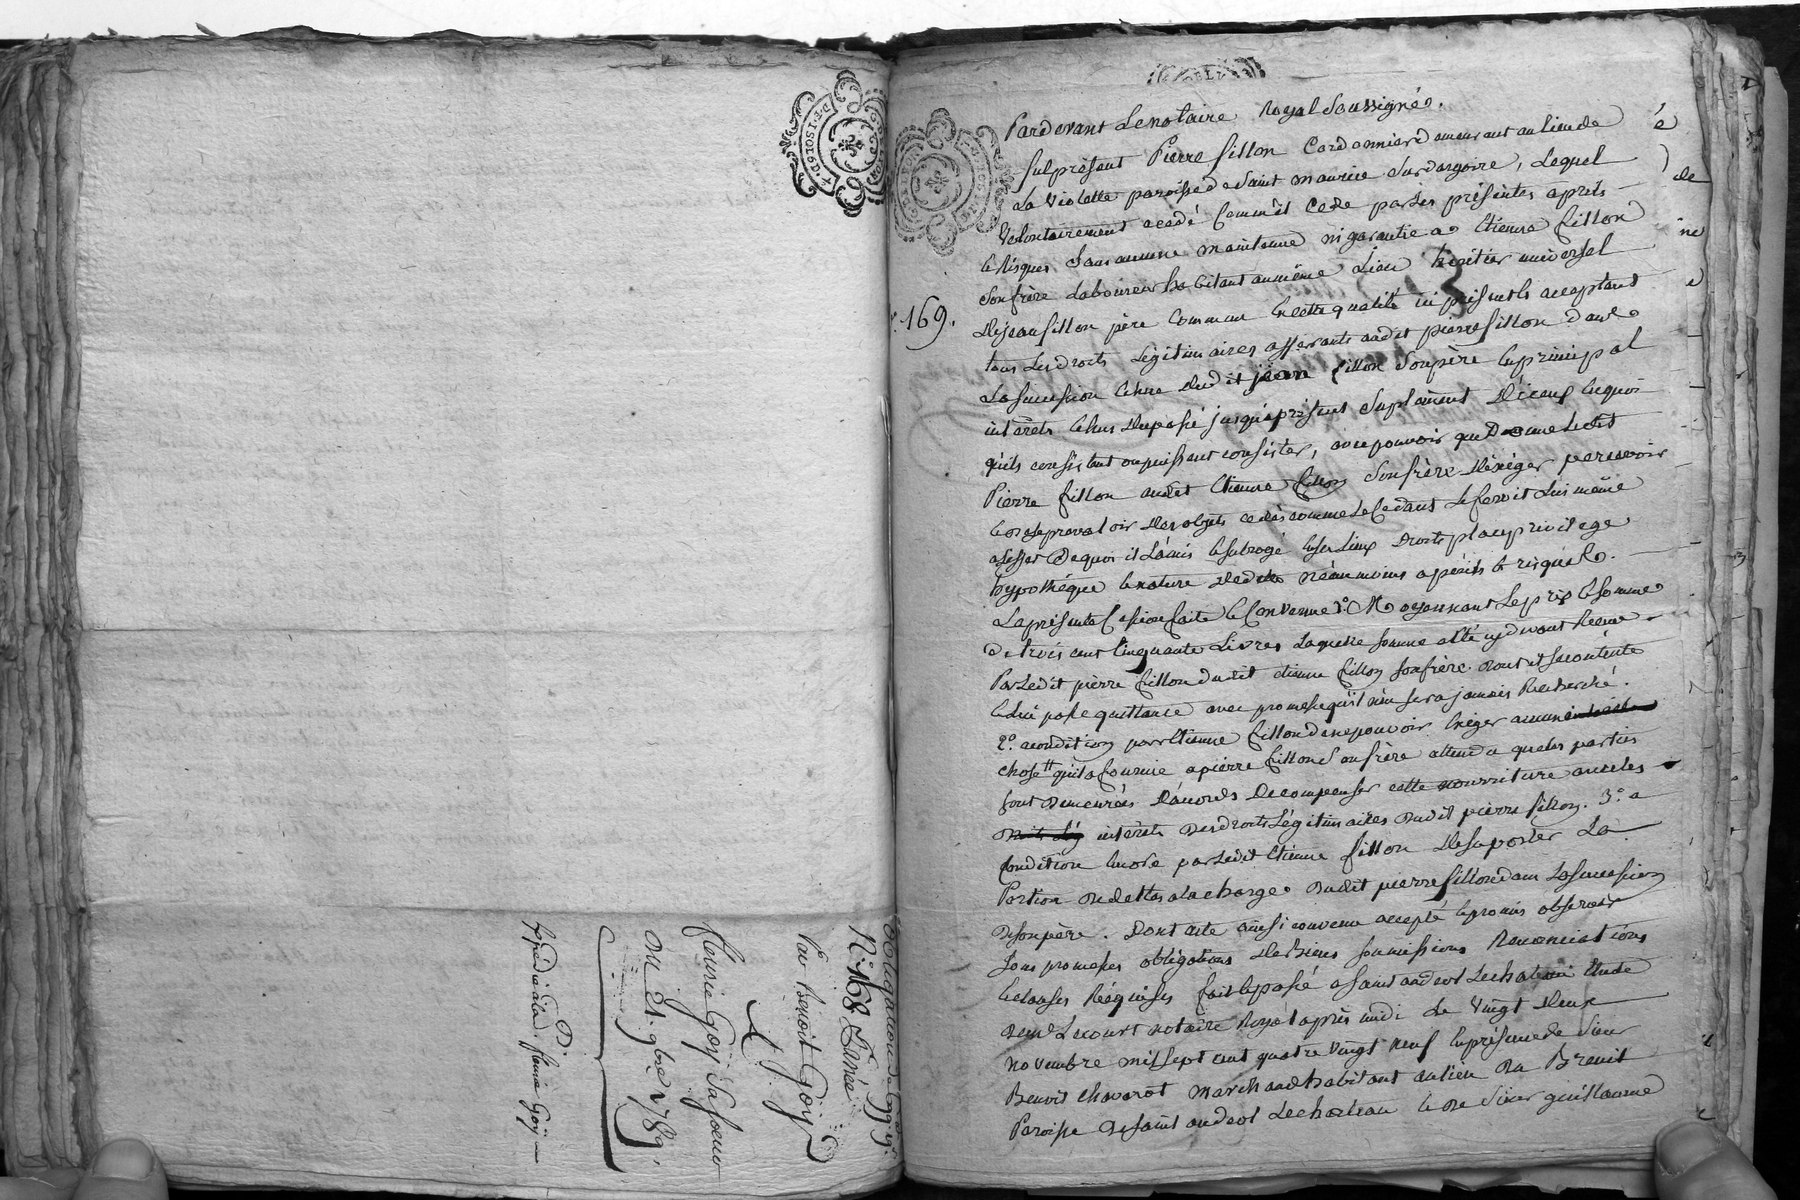 obligation de 599 ₶
N.° 168. Année
Par Benoit Goÿ
A
fleurie Goÿ Sa soeur
Du 21. 9bre 1789.
D.
Expédié a lad. fleurie Goÿ
169.
Pardevant Le notaire Royal Soussigné.
fut présent Pierre fillon Cordonnier demeurant au lieu de
La Violette paroisse de Saint maurice Sur dargoire, Lequel
Volontairement a cedé Comm'il Cede par Les présentes a perils
et Risques Sans aucune maintenue ni garantie a Etienne fillon
Son frère Laboureur habitant au même Lieu héritier universel
De jean fillon père Commun En cette qualité ici présent & acceptant
tous Les droits Légitimaires afferrants audit pierre fillon dans
La Succession Echue dudit jean fillon Son père En principal
intérêts Echus Du passé jusqu'à présent Suplément D'iceux En quoi
qu'ils consistent ou puissent consister, avec pouvoir que Donne Ledit
Pierre fillon audit Etienne fillon Son frère D'exéger percevoir
et se prevaloir Des objets cedés comme Le Cedant Le feroit Lui même
a L'effet De quoi il L'a mis et subrogé En ses Lieux Droits place privilege
hypothéque et nature De dette néanmoins a périls et risques.
La présente Cession faite et Convenue 1.° Moyennant Le prix et Somme
De trois cent Cinquante Livres Laquelle Somme a été cy devant Recue
Par Ledit pierre fillon dudit etienne fillon son frère. Dont il Se contente
et Lui passe quittance avec promesse qu'il n'en Sera jamais Recherché.
2.° a condition par Etienne fillon de ne pouvoir Exéger aucune
chose qu'il a fournie a pierre fillon Son frère attendu que les parties
Sont Demeurées D'accords De compenser cette nourriture avec les
intérêts Des droits Légitimaires Dudit pierre fillon. 3.° a
Condition Encore par Ledit Etienne fillon De Suporter La
Portion De dettes a La charge Dudit pierre fillon dans La Succession
De Son père. Dont acte ainsi convenu accepté et promis observer
Sous promesses obligations De Biens Soumissions Renonciations
et clauses Requises fait et passé a Saint andeol Le chateau Etude
De me Lecourt notaire Royal après midi Le Vingt Deux
novembre mil Sept cent quatre Vingt neuf En présence de Sieur
Benoit chavarot marchand habitant au lieu Du Breuil
Paroisse De Saint andeol Le chateau et De Sieur guillaume